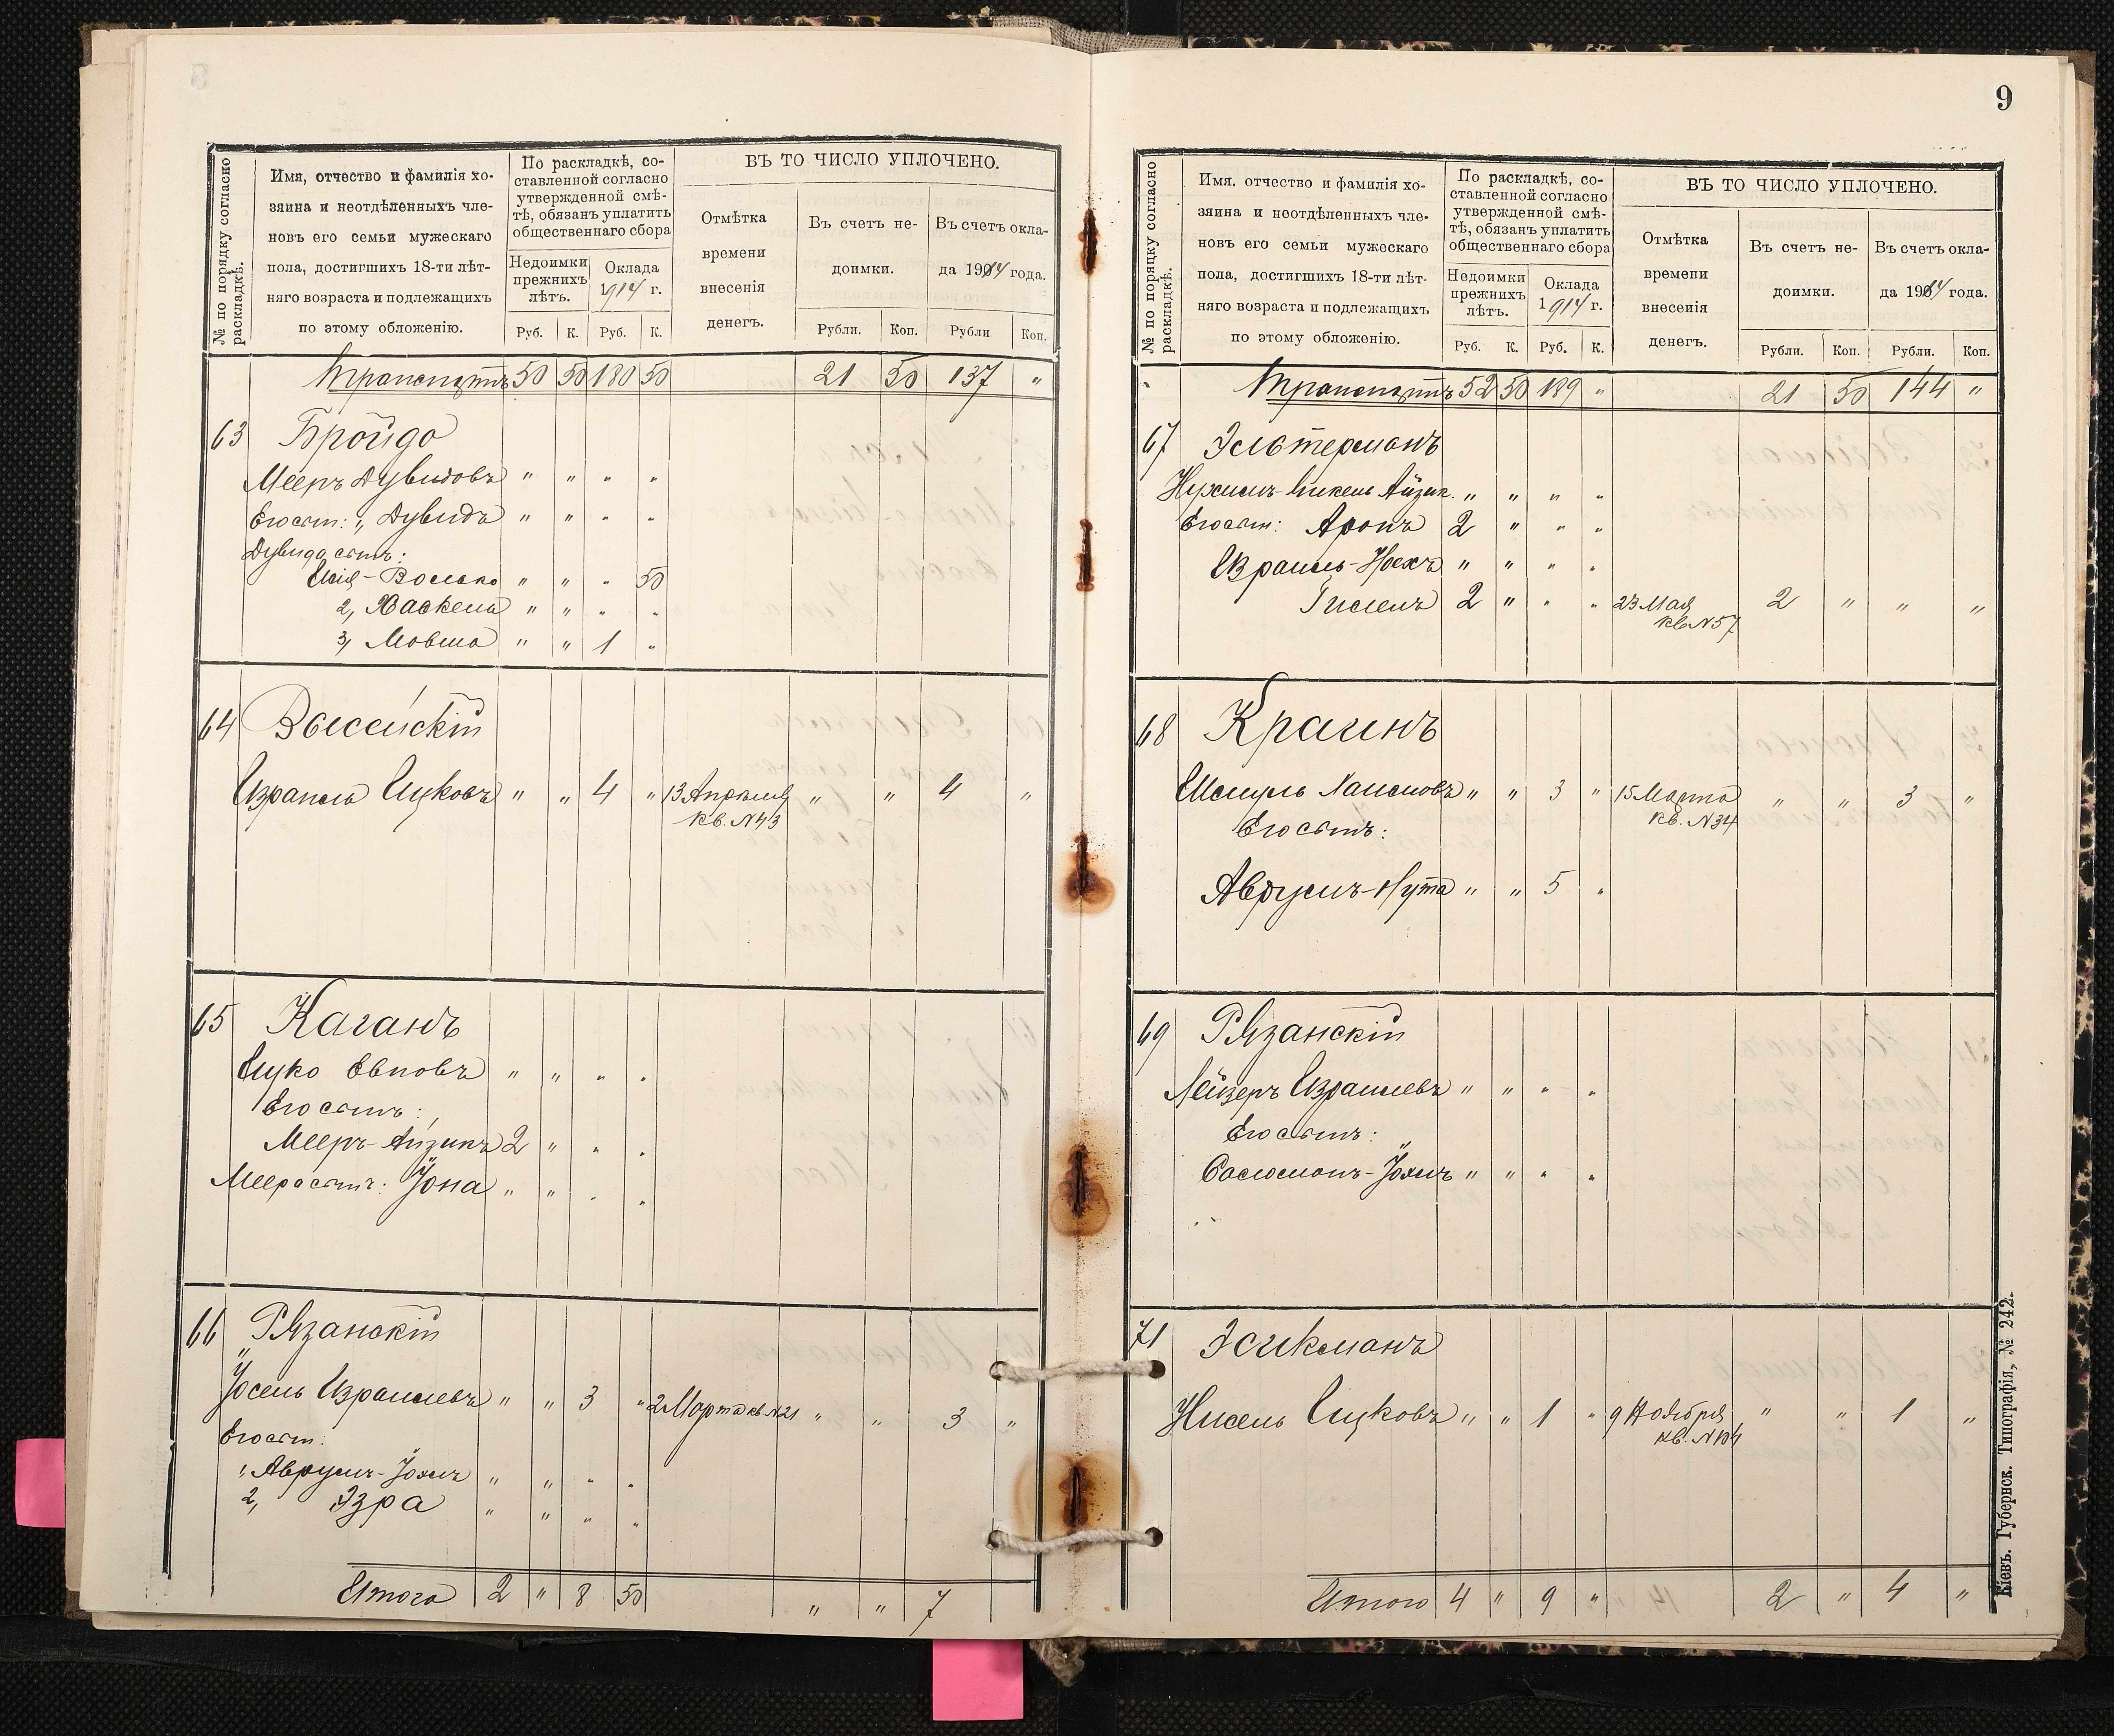 № по порядку согласно раскладкѣ.
Имя, отчество и фамилія хо-
зяина и неотдѣленныхъ чле-
новъ его семьи мужескаго
пола, достигшихъ 18-ти лѣт-
няго возраста и подлежащихъ
по этому обложенію.
По раскладкѣ, со-
ставленной согласно
утвержденной смѣ-
тѣ, обязанъ уплатить
общественнаго сбора
Недоимки прежнихъ лѣтъ.
Оклада 1914 г.
Руб. К. Руб. К.
ВЪ ТО ЧИСЛО УПЛОЧЕНО.
Отмѣтка
времени
внесенія
денегъ.
Въ счетъ не-
доимки.
Въ счетъ окла-
да 1914 года.
Рубли. Коп. Рубли Коп.
Транспортъ 50 50 180 50 21 50 137 "
63 Бройдо
Мееръ Дувидовъ " " " "
Его сын: 1, Дувидъ " " " "
Дувида сынъ:
Исія-Волько " " " 50
2, Хаскель " " " "
3, Мовша " " 1 "
64 Высейскій
Израиль Ицковъ " " 4 " 13 Апрѣля " " 4 "
кв. N43
65 Каганъ
Ицко Евновъ " " " "
Его сынъ:
Мееръ-Айзикъ 2 " " "
Меера сынъ: Іона " " " "
66 Рязанскій
Іосель Израилевъ " " 3 " 2 Марта кв N21 " " 3 "
Его сын:
1, Аврумъ-Іохмъ " " " "
2, Эзра " " " "
Итого 2 " 8 50 " " 7
9
№ по порядку согласно раскладкѣ.
Имя, отчество и фамилія хо-
зяина и неотдѣленныхъ чле-
новъ его семьи мужескаго
пола, достигшихъ 18-ти лѣт-
няго возраста и подлежащихъ
по этому обложенію.
По раскладкѣ, со-
ставленной согласно
утвержденной смѣ-
тѣ, обязанъ уплатить
общественнаго сбора
Недоимки прежнихъ лѣтъ.
Оклада 1914 г.
Руб. К. Руб. К.
ВЪ ТО ЧИСЛО УПЛОЧЕНО.
Отмѣтка
времени
внесенія
денегъ.
Въ счетъ не-
доимки.
Въ счетъ окла-
да 1914 года.
Рубли. Коп. Рубли. Коп.
Транспортъ 52 50 189 " 21 50 144 "
67 Эльтерманъ
Нухимъ Айзик. " " " "
Его сын: Аронъ 2 " " "
Израиль-Ноехъ " " " "
2 " " " 23 Мая 2 " " "
кв N57
68 Краинъ
Шмуль Хаимовъ " " 3 " 15 Марта " " 3 "
кв. N34
Его сынъ:
Аврумъ-Нута " " 5 "
69 Рязанскій
Лейзеръ Израилевъ " " " "
Его сынъ:
Соломонъ-Іохмъ " " " "
71 Эсикманъ
Нисель Ицковъ " " 1 " 9 Ноября " " 1 "
кв. N104
Итого 4 " 9 " 2 " 4 "
Кіевъ. Губернск. Типографія, № 242.